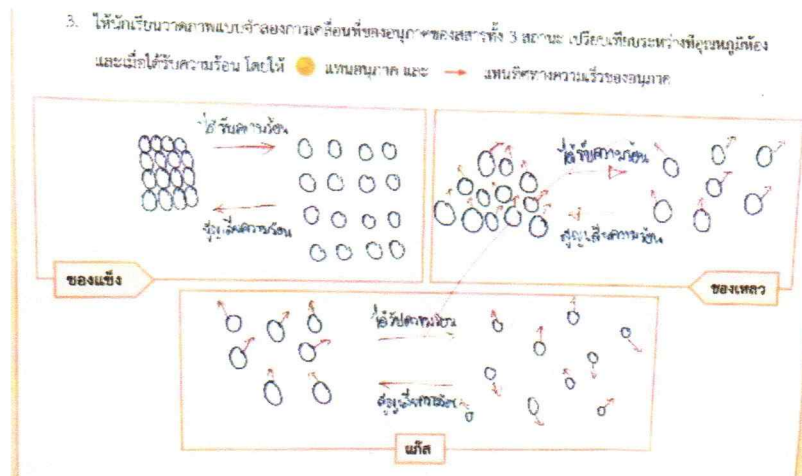 3. ให้นักเรียนวาดภาพแบบจำลองการเคลื่อนที่ของอนุภาคของสสารทั้ง 3 สถานะ เปรียบเทียบระหว่างที่อุณหภูมิห้อง
และเมื่อได้รับความร้อน โดยให้ แทนอนุภาค และ แทนทิศทางความเร็วของอนุภาค
ได้รับความร้อน
สูญเสียความร้อน
ของแข็ง
ได้รับความร้อน
สูญเสียความร้อน
ของเหลว
ได้รับความร้อน
สูญเสียความร้อน
แก๊ส